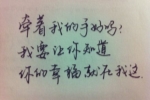 牵着我的手好吗！
我要让你知道
你的幸福就在我这